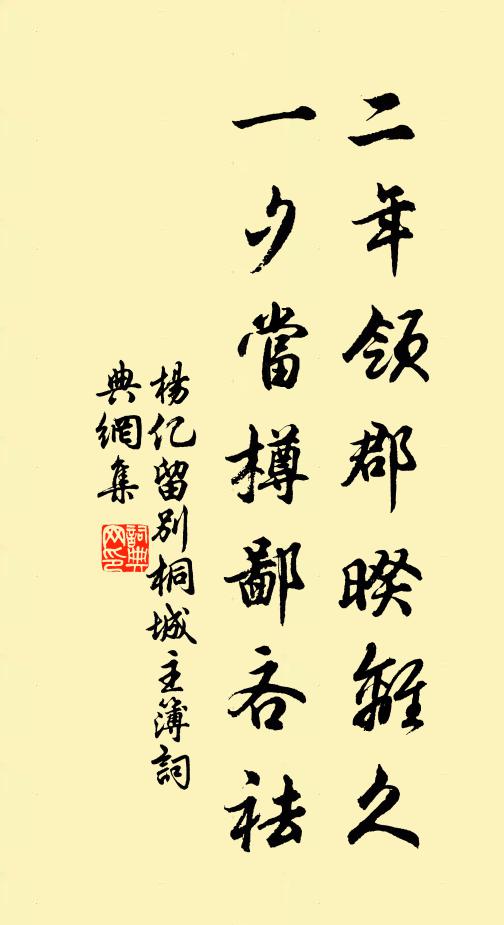 二年領郡暌離久
一夕當樽鄙吝袪
楊億留別桐城主簿詞
典網集
詞典
网印